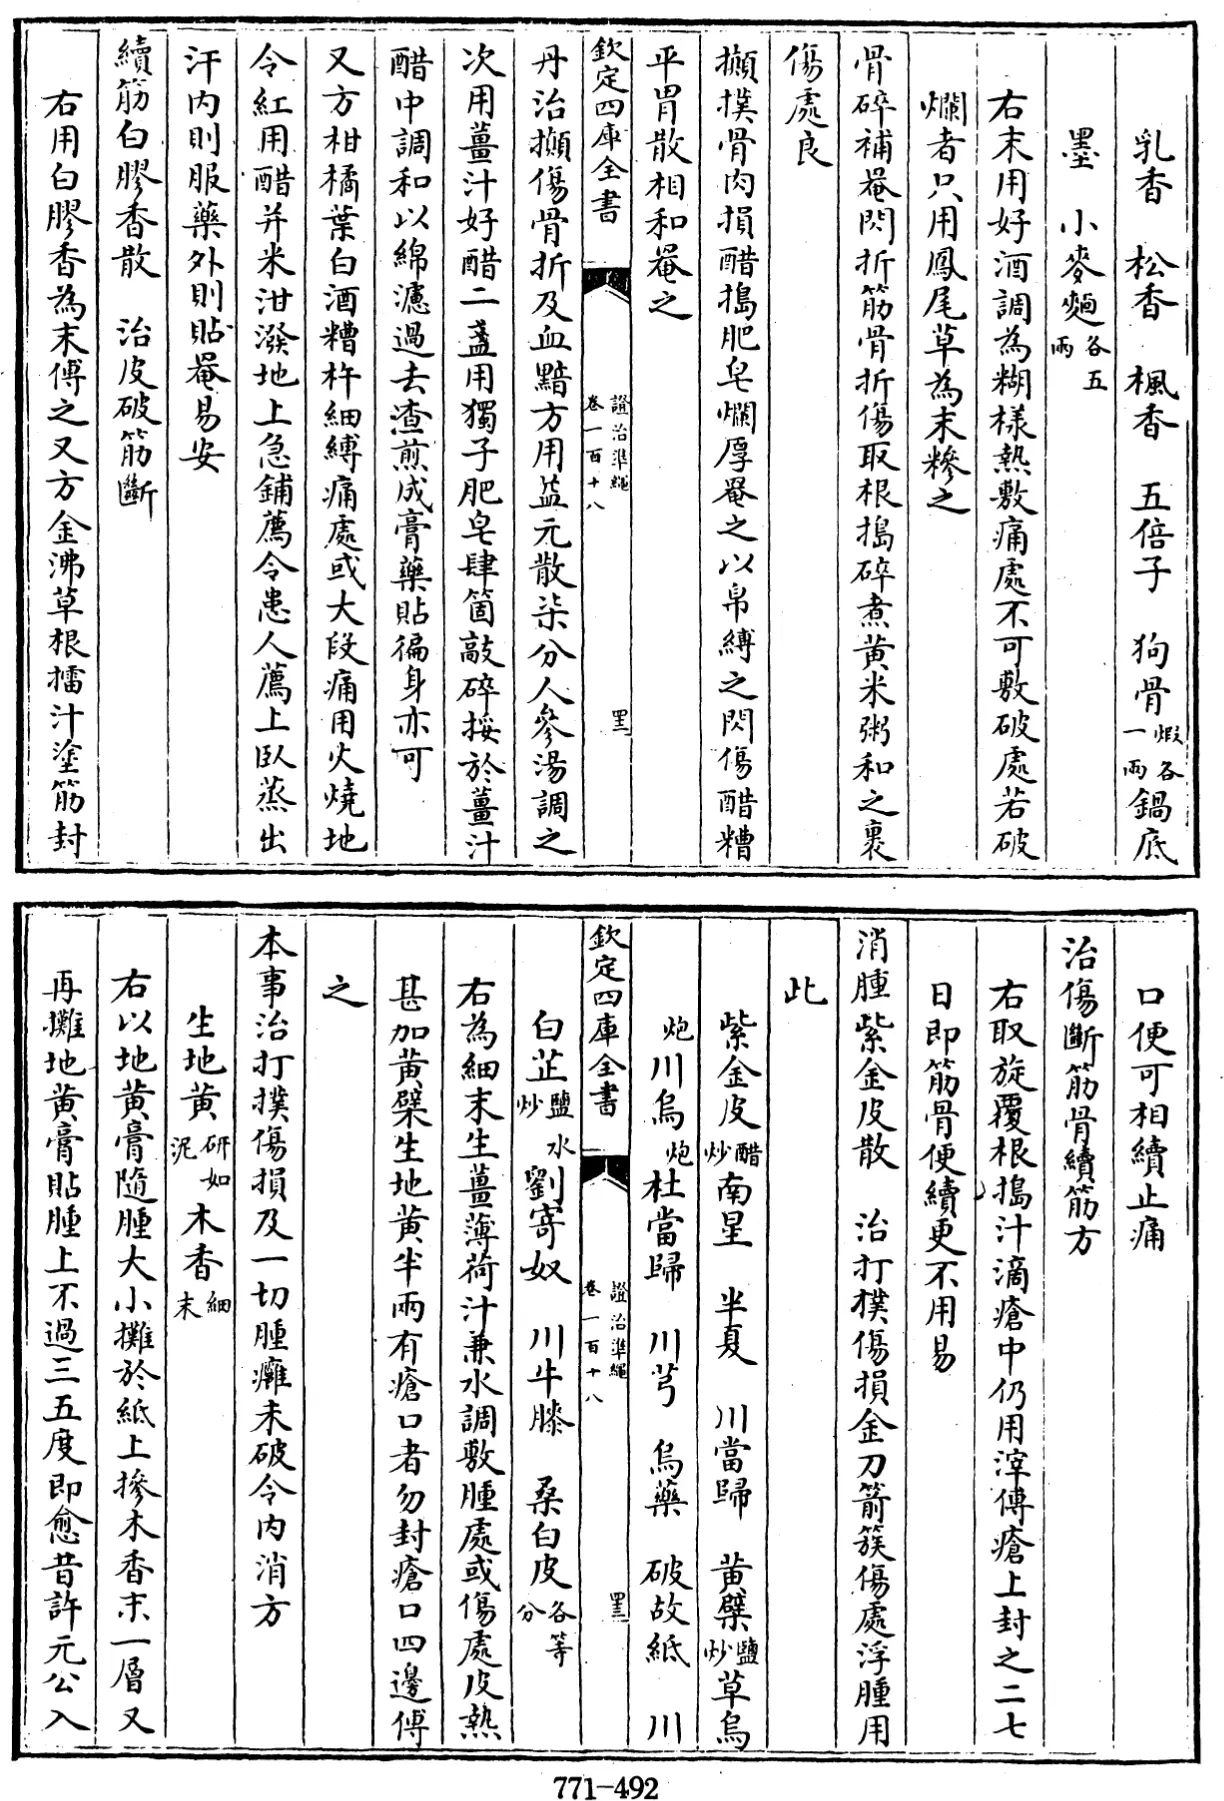 乳香　松香　楓香　五倍子　狗骨煅各一兩鍋底
墨　小麥麵各五兩
右末用好酒調為糊樣熱敷痛處不可敷破處若破
爛者只用鳳尾草為末糝之
骨碎補罨閃折筋骨折傷取根搗碎煮黃米粥和之裹
傷處良
攧撲骨肉損醋搗肥皂爛厚罨之以帛縛之閃傷醋糟
平胃散相和罨之
欽定四庫全書　證治準繩卷一百十八　四三
丹治攧傷骨折及血黯方用益元散柒分人參湯調之
次用薑汁好醋二盞用獨子肥皂肆箇敲碎挼於薑汁
醋中調和以綿濾過去渣煎成膏藥貼徧身亦可
又方柑橘葉白酒糟杵細縛痛處或大段痛用火燒地
令紅用醋并米泔潑地上急鋪薦令患人薦上臥蒸出
汗內則服藥外則貼罨易安
續筋白膠香散　治皮破筋斷
右用白膠香為末傅之又方金沸草根擂汁塗筋封
口便可相續止痛
治傷斷筋骨續筋方
右取旋覆根搗汁滴瘡中仍用滓傅瘡上封之二七
日即筋骨便續更不用易
消腫紫金皮散　治打撲傷損金刀箭簇傷處浮腫用
此
紫金皮醋炒南星　半夏　川當歸　黃蘗鹽炒草烏
炮川烏炮杜當歸　川芎　烏藥　破故紙　川
欽定四庫全書　證治準繩卷一百十八　四三
白芷鹽水炒劉寄奴　川牛膝　桑白皮各等分
右為細末生薑薄荷汁兼水調敷腫處或傷處皮熱
甚加黃蘗生地黃半兩有瘡口者勿封瘡口四邊傅
之
本事治打撲傷損及一切腫癰未破令內消方
生地黃研如泥木香細末
右以地黃膏隨腫大小攤於紙上摻木香末一層又
再攤地黃膏貼腫上不過三五度即愈昔許元公入
771-492